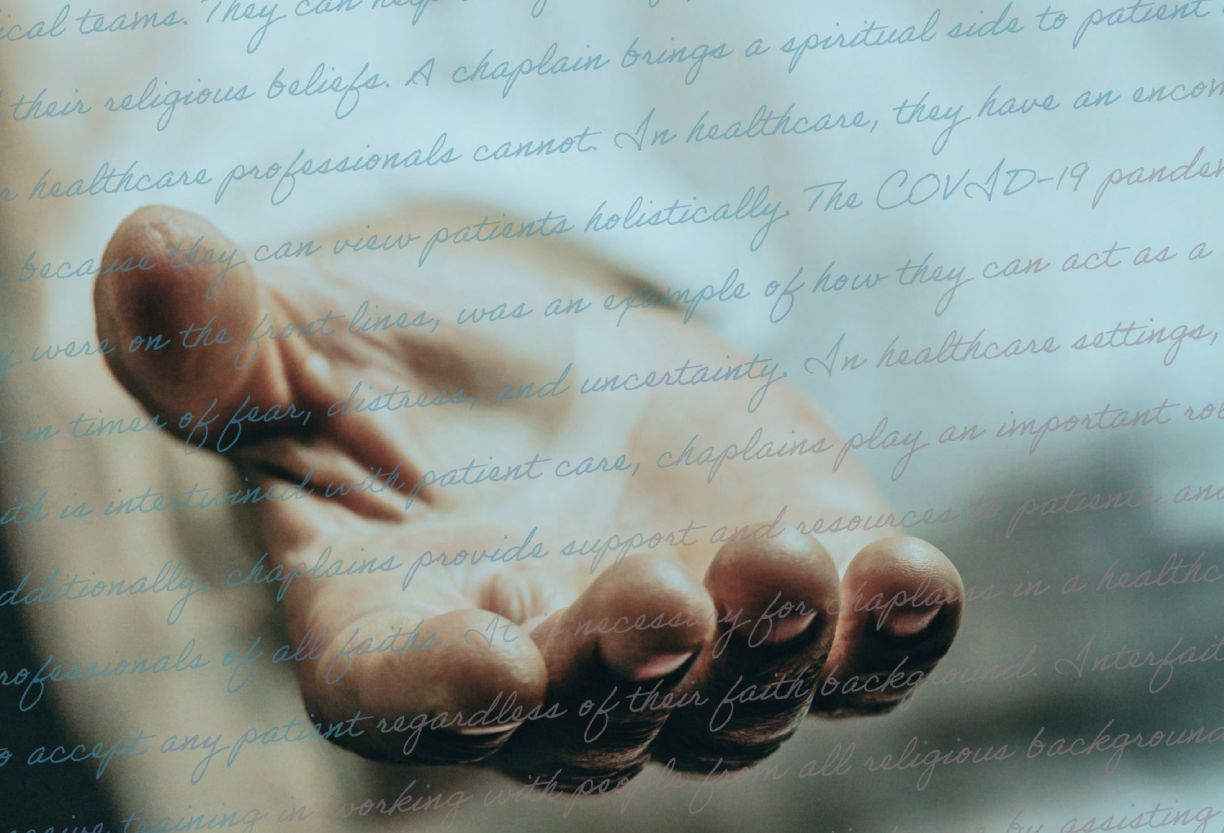 ical teams. They can help
their religious beliefs. A chaplain brings a spiritual side to patient
healthcare professionals cannot. In healthcare, they have an encom
because they can view patients holistically. The COVID-19 pandem
y were on the front lines, was an example of how they can act as a
in times of fear, distress, and uncertainty. In healthcare settings,
ith is intertwined with patient care, chaplains play an important ro
dditionally, chaplains provide support and resources to patients and
rofessionals of all faiths. It is necessary for chaplains in a healthc
o accept any patient regardless of their faith background. Interfait
training in working with people from all religious background
by assisting